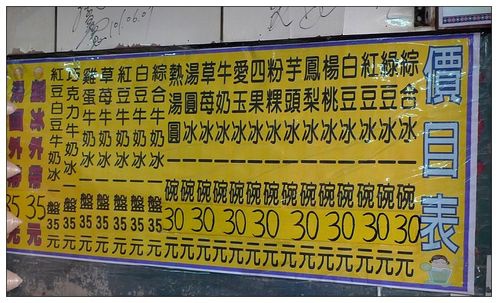 價目表
綜合冰一碗30元
綠豆冰一碗30元
紅豆冰一碗30元
白豆冰一碗30元
楊桃冰一碗30元
鳳梨冰一碗30元
芋頭冰一碗30元
粉粿冰一碗30元
四果冰一碗30元
愛玉冰一碗30元
牛奶冰一碗30元
草莓冰一碗30元
湯圓冰一碗30元
熱湯圓一碗30元
綜合牛奶冰一盤35元
白豆牛奶冰一盤35元
紅豆牛奶冰一盤35元
草莓牛奶冰一盤35元
雞蛋牛奶冰一盤35元
巧克力牛奶冰一盤35元
紅豆白豆牛奶冰一盤35元
冰外帶35元
湯圓外帶35元